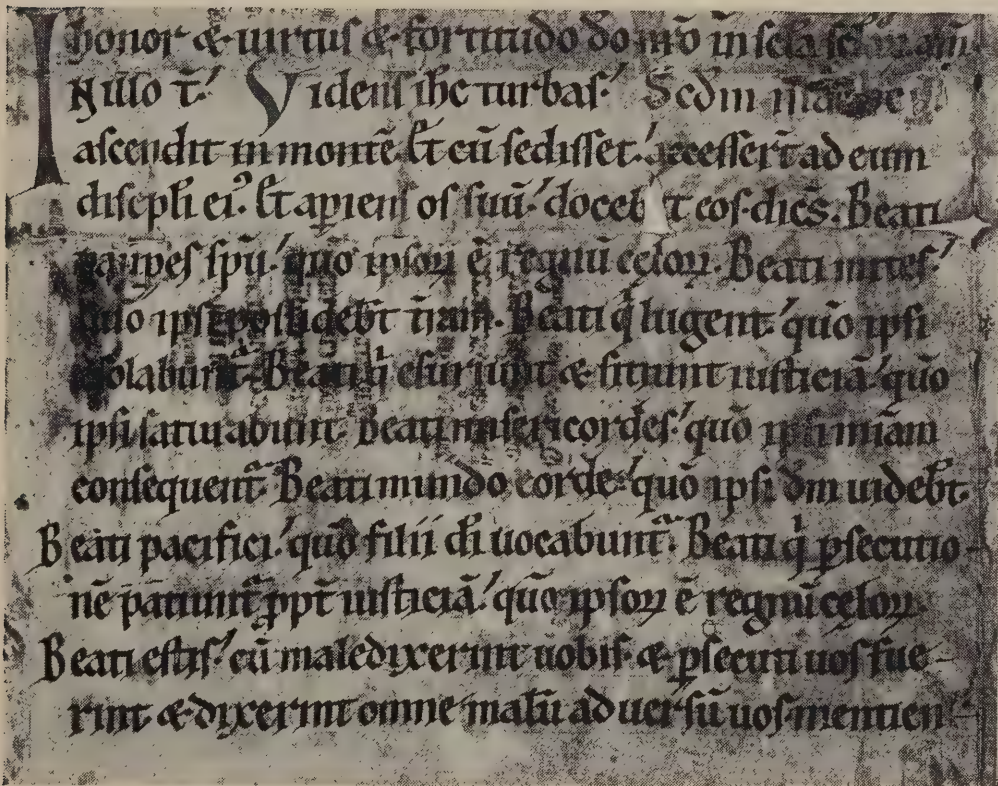 honor & uirtus & fortitudo dō nr̄o in scl̄a scl̄oꝝ am̄.
IN illo t̄. Videns ih̄c turbas. Scd̄m
ascendit in montē. Et cū sedisset. accesser̄t ad eum
discipl̄i ei᷒. Et aꝑiens os suū. docebat eos dic̄s. Beati
pauꝑes sp̄u. quō ipsoꝝ ē regnū cęloꝝ. Beati mites.
quō ipsi possidebt̄ tr̄am. Beati qͥ lugent. quō ipsi
ꝯsolabunt᷑. Beati qͥ esuriunt & sitiunt iusticiā. quō
ipsi saturabunt᷑. Beati misericordes. quō ipsi mīam
consequent᷑. Beati mundo corde. quō ipsi dm̄ uidebt̄.
Beati pacifici. quō filii dī uocabunt᷑. Beati qͥ ꝑsecutio-
nē patiunt᷑ ꝓpt̄ iusticiā. quō ipsoꝝ ē regnū cęloꝝ.
Beati estis. cū maledixerint uobis. & ꝑsecuti uos fue-
rint. & dixerint omne malū aduersū uos. mentien-